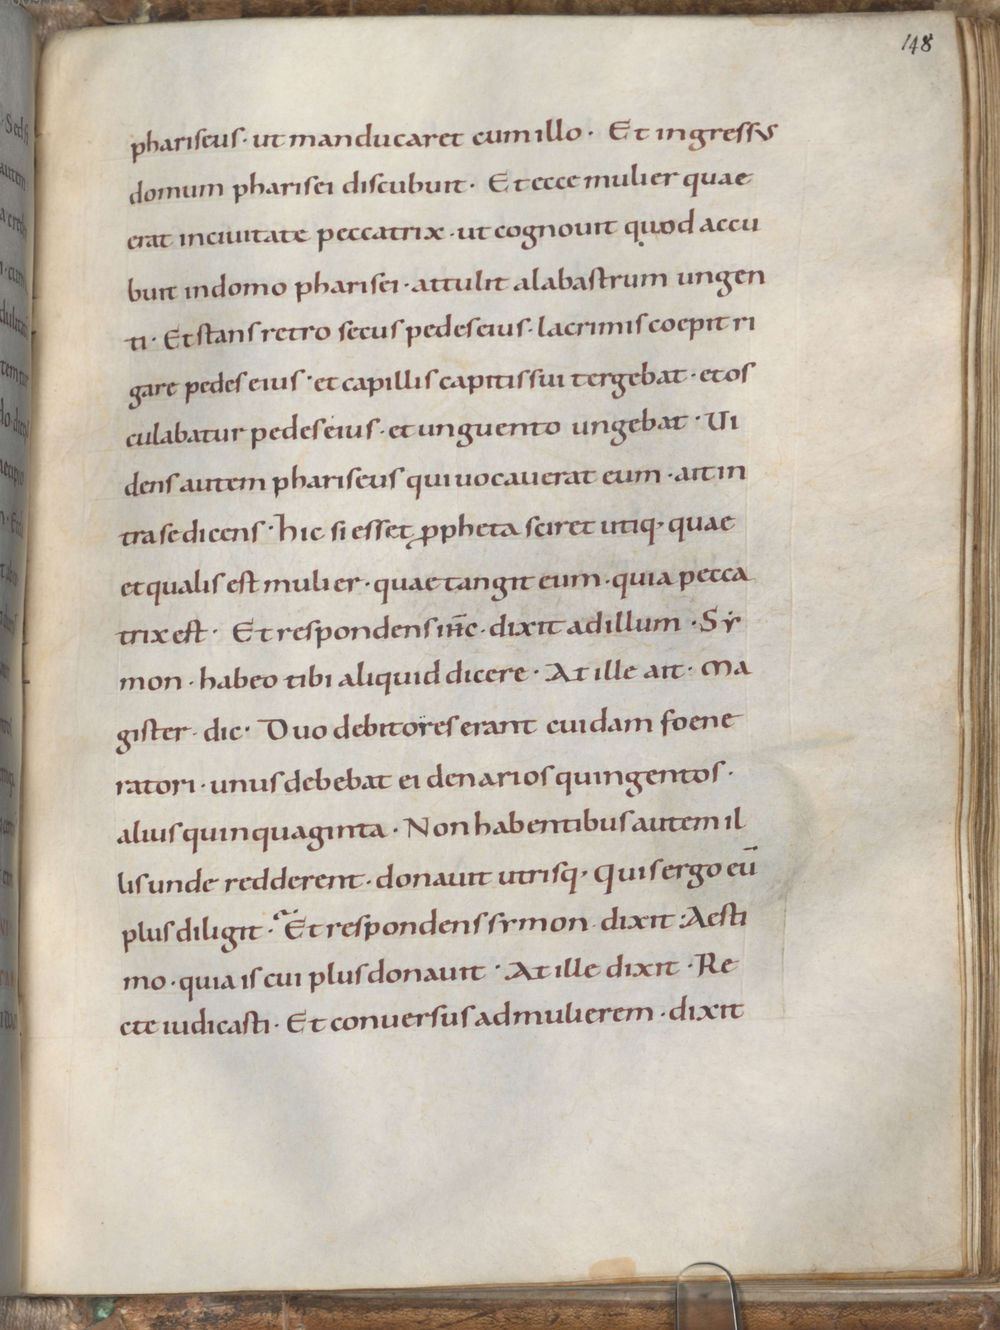 148
phariseus · ut manducaret cum illo · Et ingressus
domum pharisei discubuit · Et ecce mulier quae
erat in ciuitate peccatrix · ut cognouit quod accu
buit in domo pharisei · attulit alabastrum ungen
ti · Et stans retro secus pedes eius · lacrimis coepit ri
gare pedes eius · et capillis capitis sui tergebat · et os
culabatur pedes eius · et unguento ungebat · Ui
dens autem phariseus qui uocauerat eum · ait in
tra se dicens · hic si esset ꝓpheta sciret utiq· quae
et qualis est mulier · quae tangit eum · quia pecca
trix est · Et respondens ih̅c · dixit ad illum · Sẏ
mon · habeo tibi aliquid dicere · At ille ait · Ma
gister · dic · Duo debitores erant cuidam foene
ratori · unus debebat ei denarios quingentos ·
alius quinquaginta · Non habentibus autem il
lis unde redderent · donauit utrisq· Quis ergo eū
plus diligit · Et respondens sẏmon · dixit · Aesti
mo · quia is cui plus donauit · At ille dixit · Re
cte iudicasti · Et conuersus ad mulierem · dixit